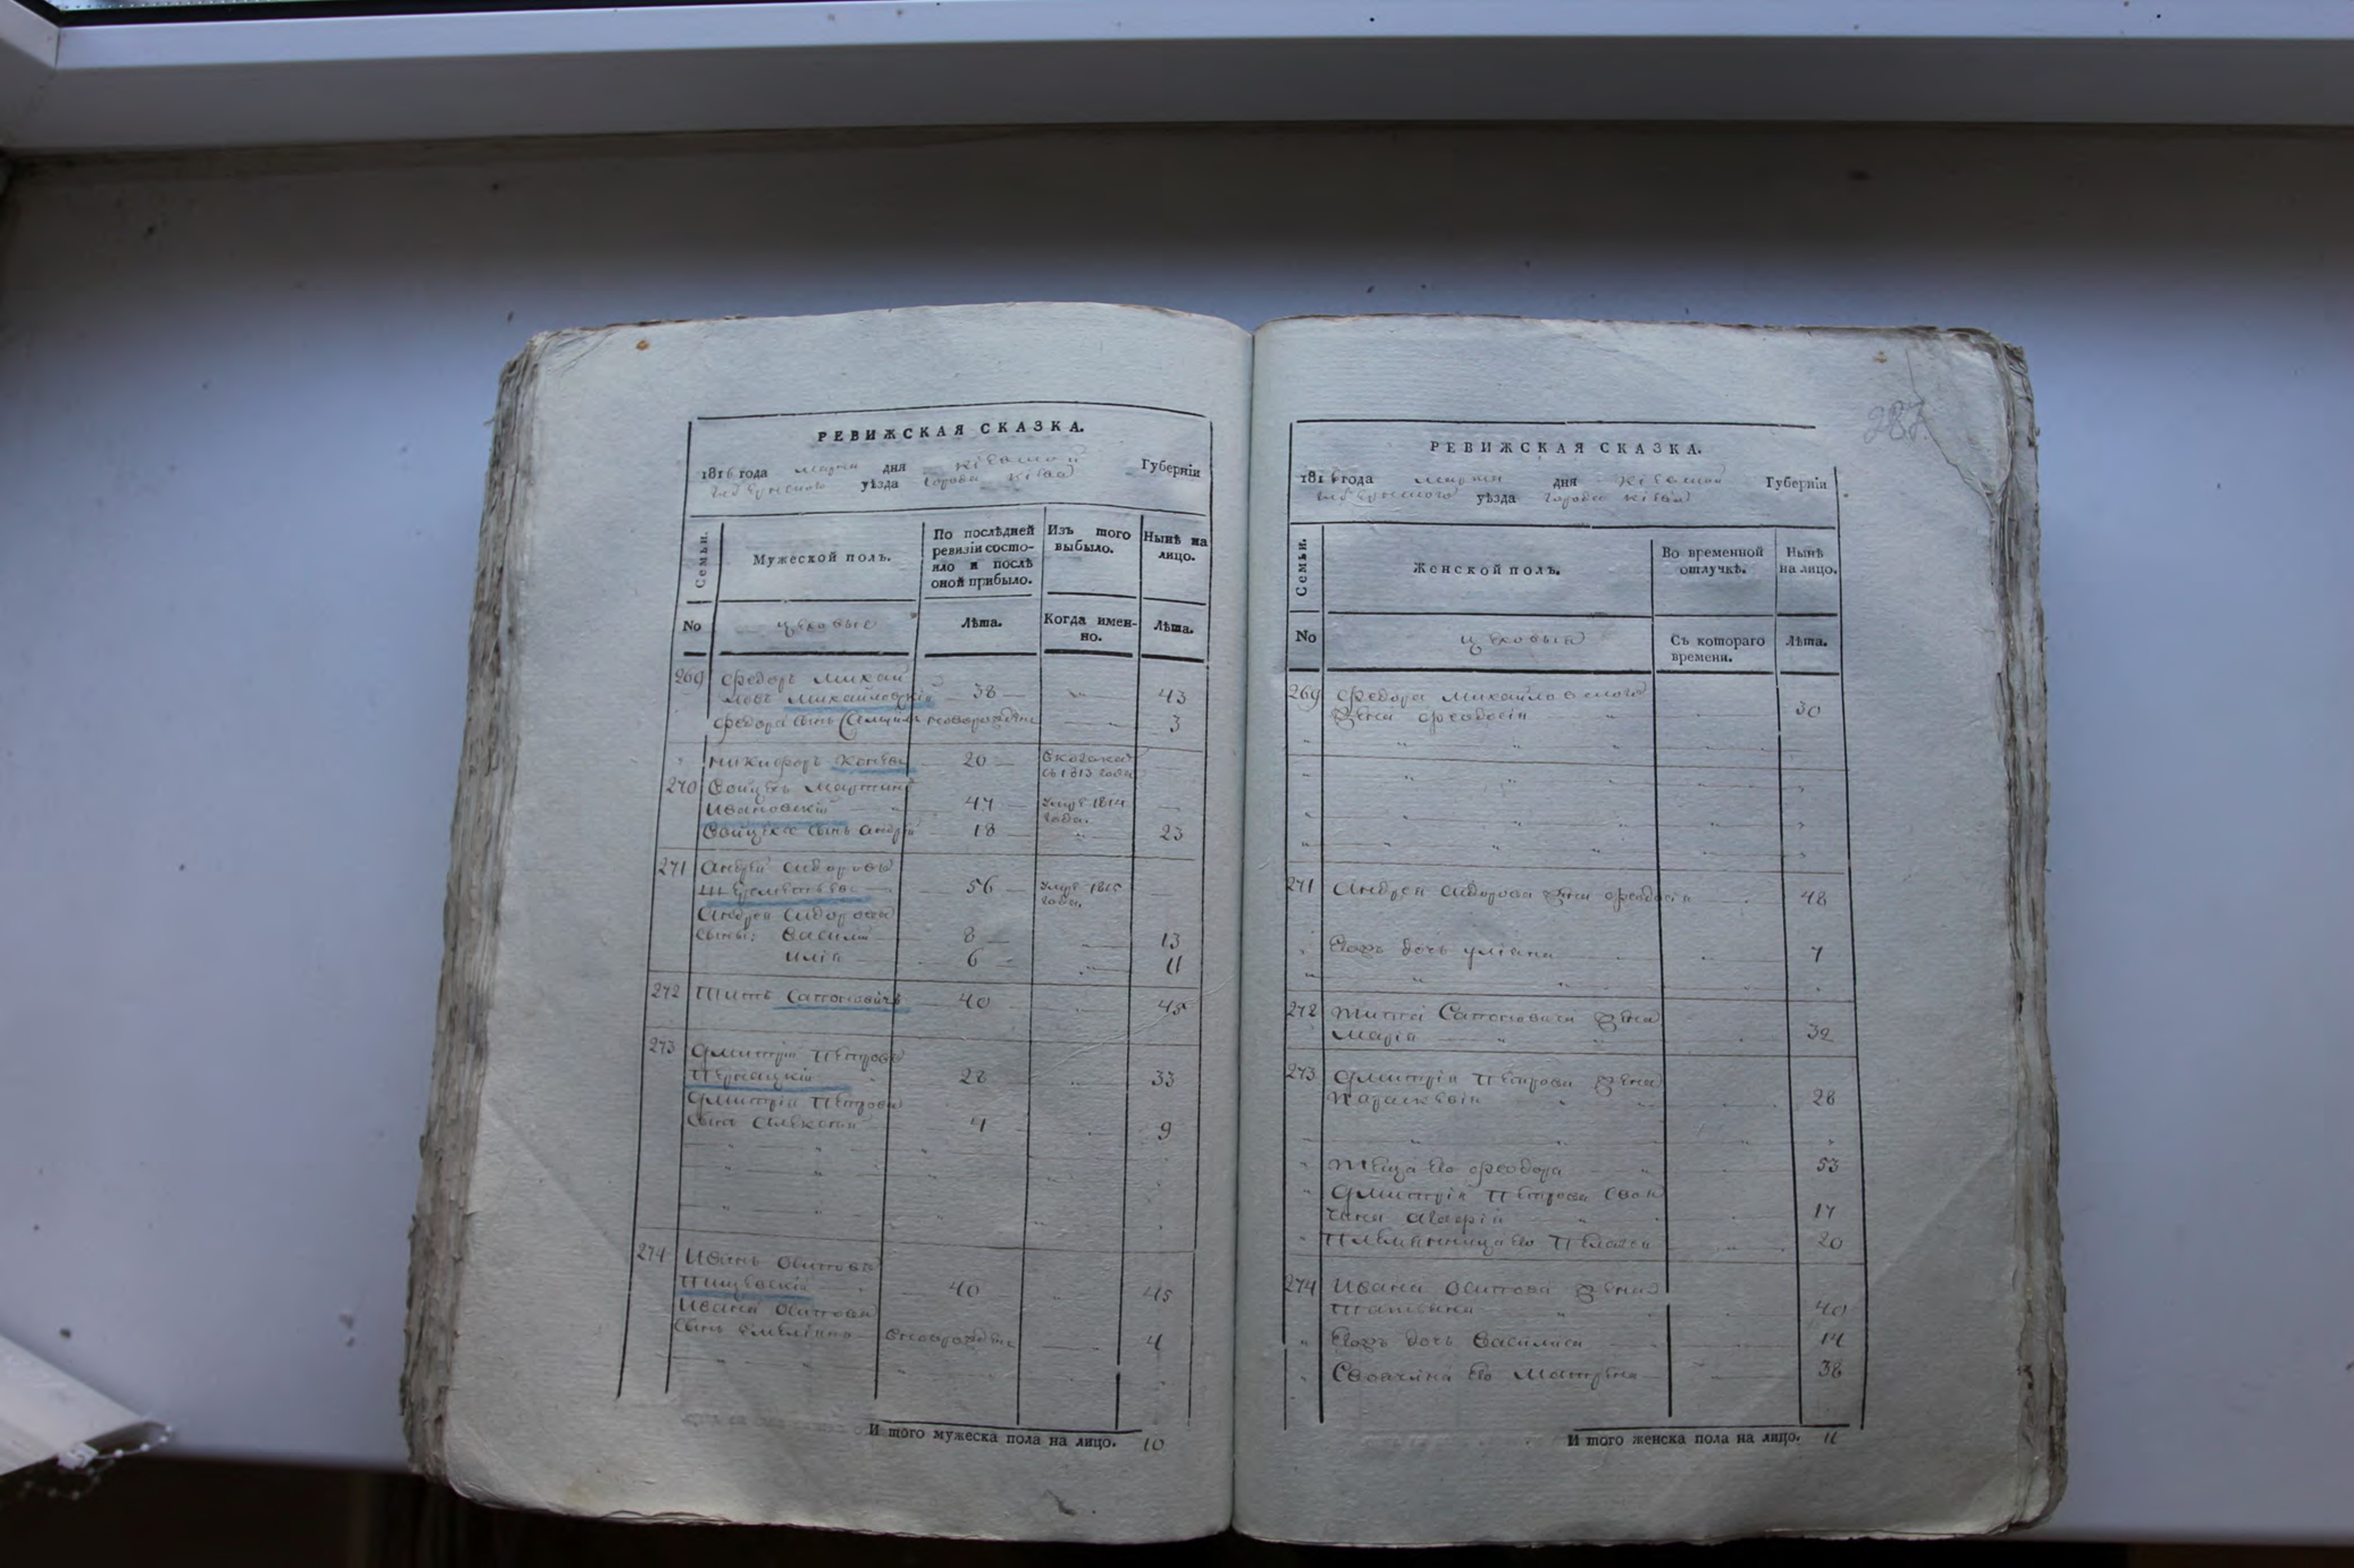 РЕВИЖСКАЯ СКАЗКА.
1816 года марта дня Кіевской Губерніи
уѣзда города Кіева
Семьи. Мужеской полъ. По послѣдней ревизіи состояло и послѣ оной прибыло. Изъ того выбыло. Нынѣ на лицо.
No цеховые Лѣта. Когда именно. Лѣта.
269 Федоръ Михай
ловъ Михайловскій 38 43
Федора сынъ новорожден 3
Никифоръ 20 1813 года
270 Войцехъ Мартинъ
Ивановскій 47 умре 1814 года.
Войцеха сынъ Андрей 18 23
271 Андрей Сидоровъ
56 умре 1815 года.
Андрея Сидорова
сыны: Василій 8 13
Илія 6 11
272 Титъ Сапоновичъ 40 45
273 Дмитрій Петровъ
28 33
Дмитрія Петрова
сынъ Алексей 4 9
274 Иванъ Осиповъ
40 45
Ивана Осипова
сынъ Емеліанъ новорожден 4
И того мужеска пола на лицо. 10
287
РЕВИЖСКАЯ СКАЗКА.
1816 года марта дня Кіевской Губерніи
уѣзда города Кіева
Семьи. Женской полъ. Во временной отлучкѣ. Нынѣ на лицо.
No цеховыя Съ котораго времени. Лѣта.
269 Федора Михайловского
жена Феодосія 30
271 Андрея Сидорова жена Феодосія 48
Ихъ дочь Уліяна 7
272 Тита Сапоновича жена
Марія 32
273 Дмитрія Петрова жена
Параскевія 28
Теща его Феодора 53
Дмитрія Петрова своя
чена 17
Племянница его Пелагея 20
274 Ивана Осипова жена
Татіяна 40
Ихъ дочь Василиса 14
Своячина его Матрена 38
И того женска пола на лицо. 11